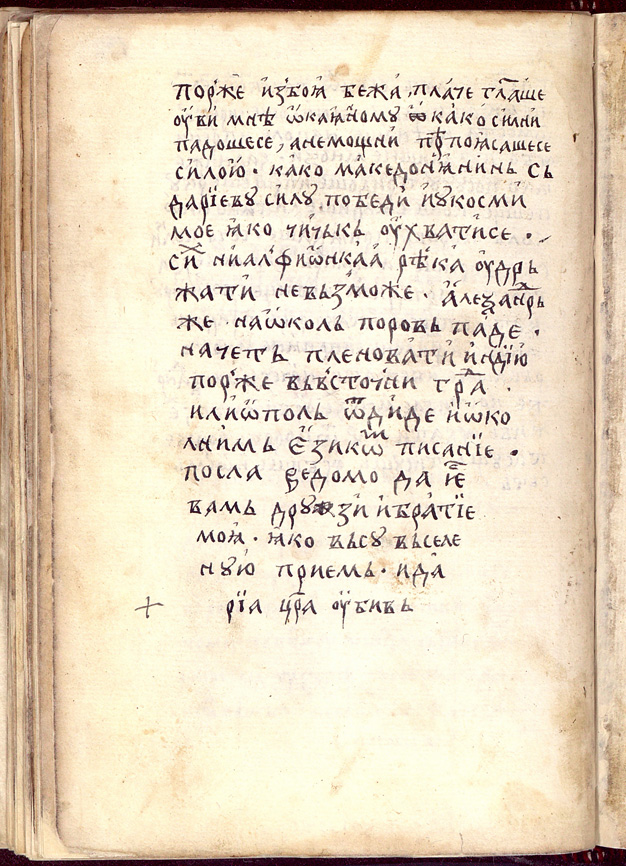 порже избоꙗ бежа, плаче глаше
ꙋви мнѣ ѡкаꙗному ѡ како силни
падошесе, анемощни прѣпоꙗсашесе
силою · како македонꙗнинь сь
дарїевꙋ силꙋ победи иꙋкосми
мое ꙗко чичькь ꙋхватисе ·
си ниалфиѡнскаа рѣка ѹдрь
жати невьзможе · алеѯандрь
же наѡколь поровь паде ·
начеть пленовати индїю
порже вьвсточни гра ·
илиѡполь ѿдиде иѡко
лнимь езикѡм писанїе ·
посла ведомо да ие
вамь друзи ибратїе
моꙗ · ꙗко вьсꙋ вьселе
нꙋю приемь · ида
рїа цра ꙋбивь